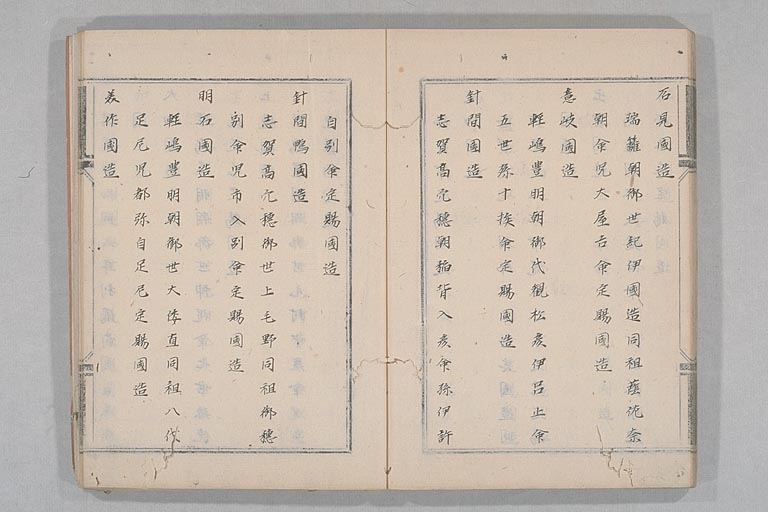 石見國造
瑞籬朝御世紀伊國造同祖蔭佐奈
朝命児大屋古命定賜國造
意岐國造
軽嶋豊明朝御代觀松彦伊呂止命
五世孫十挨命定賜國造
針間國造
志賀高穴穗朝稲背入彦命孫伊許
自別命定賜國造
針間鴨國造
志賀高穴穗御世上毛野同祖御穗
別命児市入別命定賜國造
明石國造
軽嶋豊明朝御世大倭直同祖八代
足尼児都弥自足尼定賜國造
美作國造